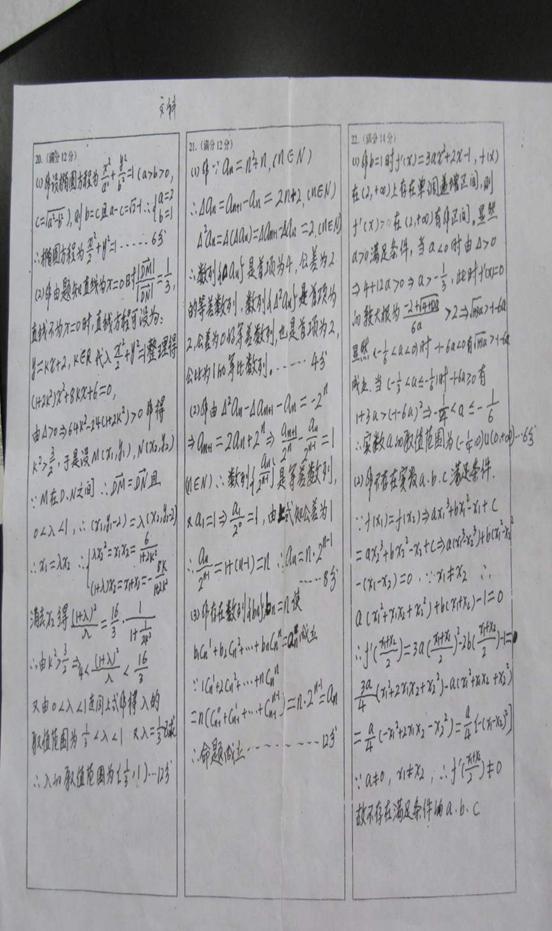 文科
20. (满分12分)
(1)解设椭圆方程为x²/a²+y²/b²=1(a>b>0,
c=√(a²-b²)),则b=c且a-c=√2-1∴{a=√2 b=1
∴椭圆方程为x²/2+y²=1……6分
(2)解由题知直线为x=0时|DM|/|DN|=1/3,
直线不为x=0时,直线方程可设为:
y=kx+2,k∈R代入x²/2+y²=1整理得
(1+2k²)x²+8kx+6=0,
由Δ>0⇒64k²-24(1+2k²)>0解得
k²>3/2,于是设M(x₁,y₁),N(x₂,y₂)
∵M在D、N之间∴DM=λDN且
0<λ<1,∴(x₁,y₁-2)=λ(x₂,y₂-2)
∴x₁=λx₂∴{λx₂²=x₁x₂=6/(1+2k²)
(1+λ)x₂=x₁+x₂=-8k/(1+2k²)
消去x₂得(1+λ)²/λ=16/3·1/(1+1/2k²)
∴由k²>3/2⇒4<(1+λ)²/λ<16/3
又由0<λ<1连同上式解得λ的
取值范围为1/3<λ<1 又λ=1/3
∴λ的取值范围为[1/3,1)…12分
21. (满分12分)
(1)解∵aₙ=n²+n,(n∈N)
∴Δaₙ=aₙ₊₁-aₙ=2n+2,(n∈N)
Δ²aₙ=Δ(Δaₙ)=Δaₙ₊₁-Δaₙ=2,(n∈N)
∴数列{Δaₙ}是首项为4,公差为2
的等差数列,数列{Δ²aₙ}是首项为
2,公差为0的等差数列,也是首项为2,
公比为1的等比数列.……4分
(2)解由Δ²aₙ-Δaₙ₊₁-aₙ=-2ⁿ
⇒aₙ₊₁=2aₙ+2ⁿ⇒aₙ₊₁/2ⁿ-aₙ/2ⁿ⁻¹=1
(n∈N)∴数列{aₙ/2ⁿ⁻¹}是等差数列,
又a₁=1⇒a₁/2⁰=1,由上式知公差为1
∴aₙ/2ⁿ⁻¹=1+(n-1)=n ∴aₙ=n·2ⁿ⁻¹
……8分
(3)解存在数列{bₙ},bₙ=n使
b₁Cₙ¹+b₂Cₙ²+…+bₙCₙⁿ=aₙ成立
∵1Cₙ¹+2Cₙ²+…+nCₙⁿ
=n(Cₙ₋₁⁰+Cₙ₋₁¹+…+Cₙ₋₁ⁿ⁻¹)=n·2ⁿ⁻¹=aₙ
∴命题成立………12分
22. (满分14分)
(1)解b=1时f'(x)=3ax²+2x-1,f(x)
在(2,+∞)上存在单调递增区间,则
f'(x)>0在(2,+∞)有解区间,显然
a>0满足条件,当a<0时由Δ>0
⇒4+12a>0⇒a>-1/3,此时f'(x)=0
的较大根为(-2-√(4+12a))/6a>2⇒√(1+3a)>-1-6a
显然(-1/6<a<0)时-1-6a<0有√(1+3a)>-1-6a
成立.当(-1/3<a≤-1/6)时-1-6a≥0有
1+3a>(-1-6a)²⇒-1/4<a≤-1/6
∴实数a的取值范围为(-1/4,0)∪(0,+∞)…6分
(2)解不存在实数a、b、c满足条件.
∵f(x₁)=f(x₂)⇒ax₁³+bx₁²-x₁+c
=ax₂³+bx₂²-x₂+c⇒a(x₁³-x₂³)+b(x₁²-x₂²)
-(x₁-x₂)=0.∵x₁≠x₂ ∴
a(x₁²+x₁x₂+x₂²)+b(x₁+x₂)-1=0
∴f'((x₁+x₂)/2)=3a((x₁+x₂)/2)²+2b((x₁+x₂)/2)-1=
3a/4(x₁²+2x₁x₂+x₂²)-a(x₁²+x₁x₂+x₂²)
=a/4(-x₁²+2x₁x₂-x₂²)=a/4[-(x₁-x₂)²]
∵a≠0,x₁≠x₂,∴f'((x₁+x₂)/2)≠0
故不存在满足条件的a、b、c